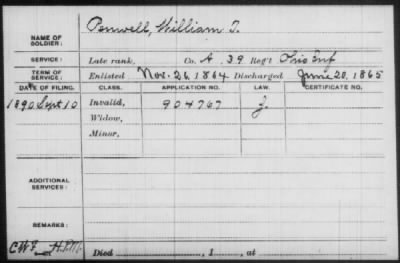 NAME OF SOLDIER: Penwell, William T.
SERVICE: Late rank, Co. A 39 Reg't Ohio Inf
TERM OF SERVICE: Enlisted Nov. 26, 1864 Discharged June 20, 1865
DATE OF FILING. CLASS. APPLICATION NO. LAW. CERTIFICATE NO.
1890 Sept 10 Invalid, 904767
Widow,
Minor,
ADDITIONAL SERVICES:
REMARKS:
Died , 1 , at